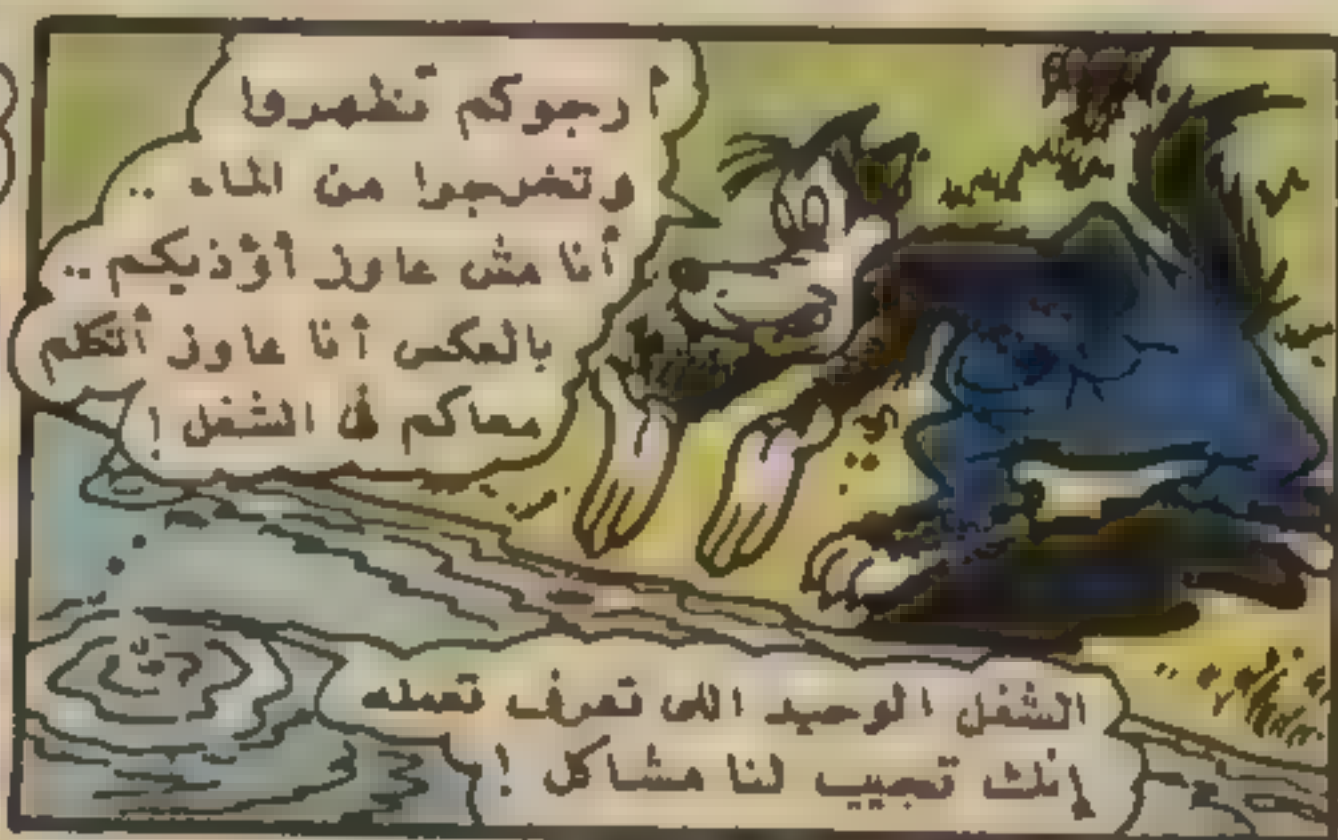 أرجوكم تظهروا
وتخرجوا من الماء ..
أنا مش عاوز أؤذيكم ..
بالعكس أنا عاوز أتكلم
معاكم فى الشغل !
الشغل الوحيد اللى تعرف تعمله
إنك تجيب لنا مشاكل !